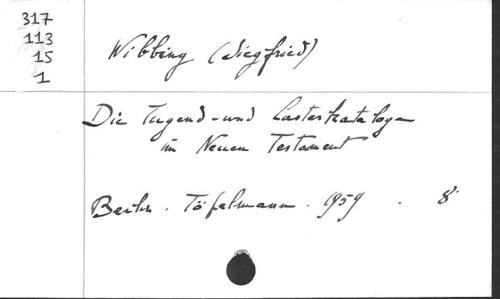 317
113
15
1
Wibbing (Siegfried)
Die Tugend-und Lasterkataloge
im Neuen Testament
Berlin. Töpelmann. 1959. 8°